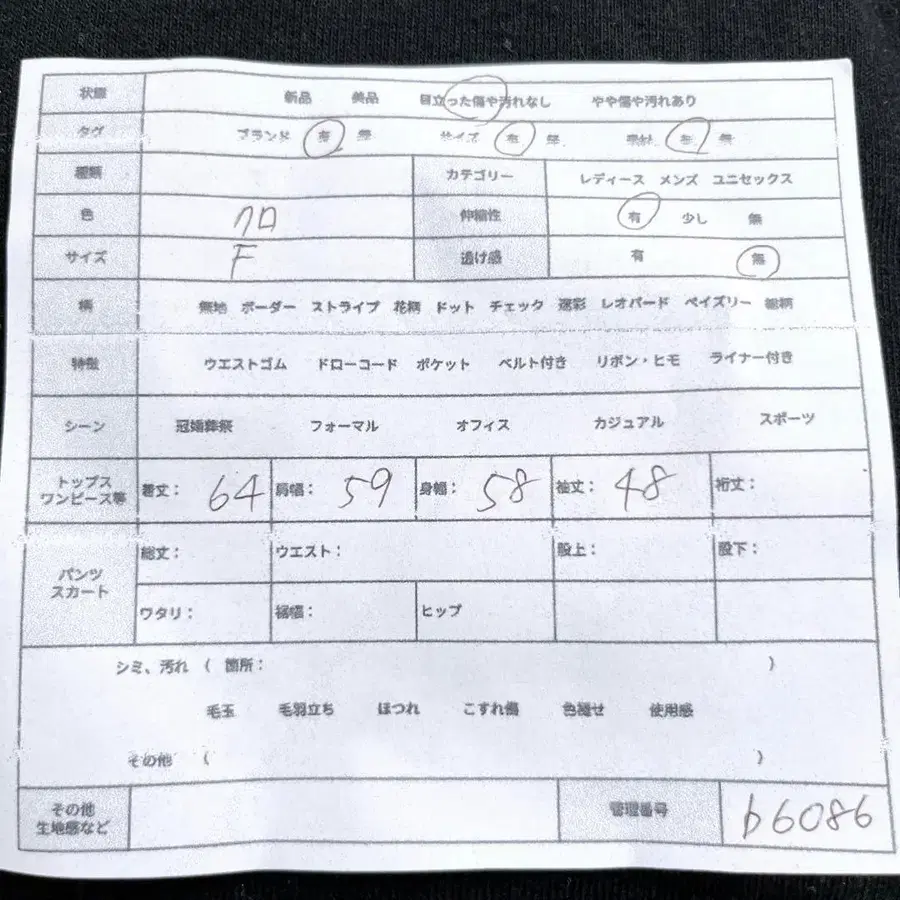 状態 新品 美品 目立った傷や汚れなし やや傷や汚れあり
タグ ブランド 有 無 サイズ 有 無 素材 有 無
種類 カテゴリー レディース メンズ ユニセックス
色 クロ 伸縮性 有 少し 無
サイズ F 透け感 有 無
柄 無地 ボーダー ストライプ 花柄 ドット チェック 迷彩 レオパード ペイズリー 総柄
特徴 ウエストゴム ドローコード ポケット ベルト付き リボン・ヒモ ライナー付き
シーン 冠婚葬祭 フォーマル オフィス カジュアル スポーツ
トップス
ワンピース等 着丈： 64 肩幅： 59 身幅： 58 袖丈： 48 裄丈：
パンツ
スカート
総丈： ウエスト： 股上： 股下：
ワタリ： 裾幅： ヒップ
シミ、汚れ （ 箇所： ）
毛玉 毛羽立ち ほつれ こすれ傷 色褪せ 使用感
その他 （ ）
その他
生地感など 管理番号 b6086